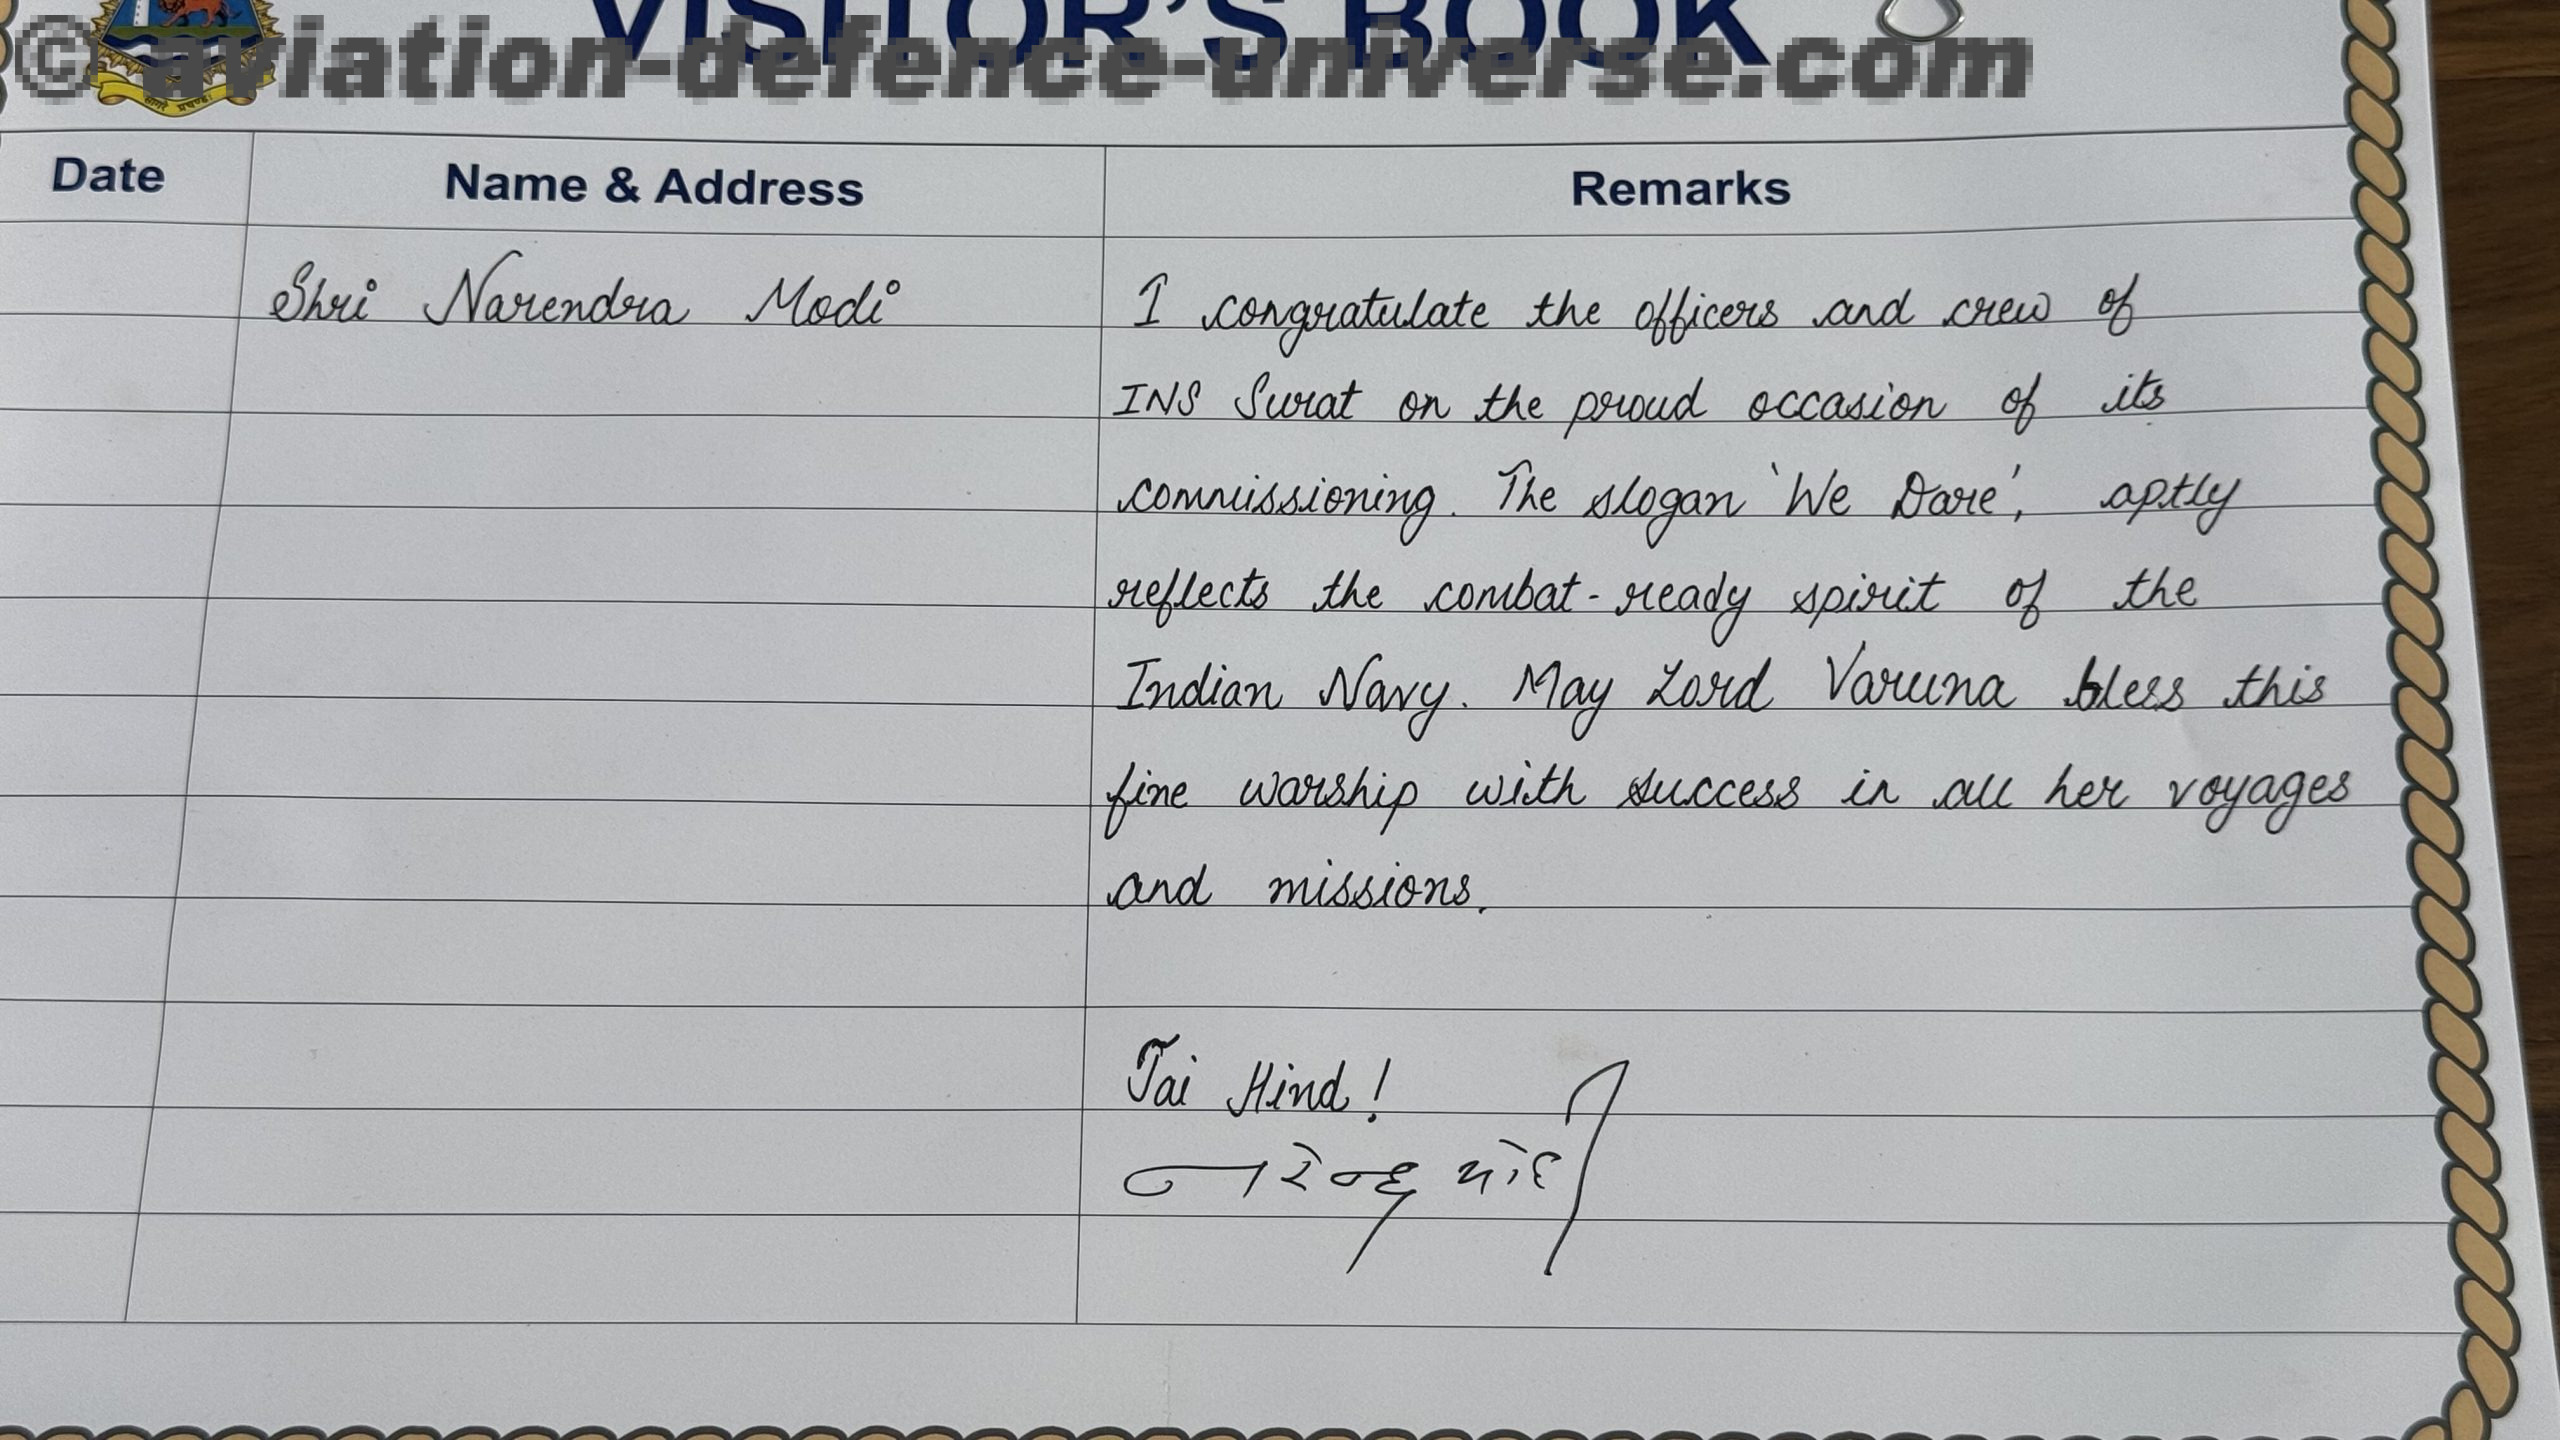 VISITOR'S BOOK
© aviation-defence-universe.com
Date Name & Address Remarks
Shri Narendra Modi
I congratulate the officers and crew of
INS Surat on the proud occasion of its
commissioning. The slogan 'We Dare', aptly
reflects the combat-ready spirit of the
Indian Navy. May Lord Varuna bless this
fine warship with success in all her voyages
and missions.
Jai Hind!
નરેન્દ્ર મોદી